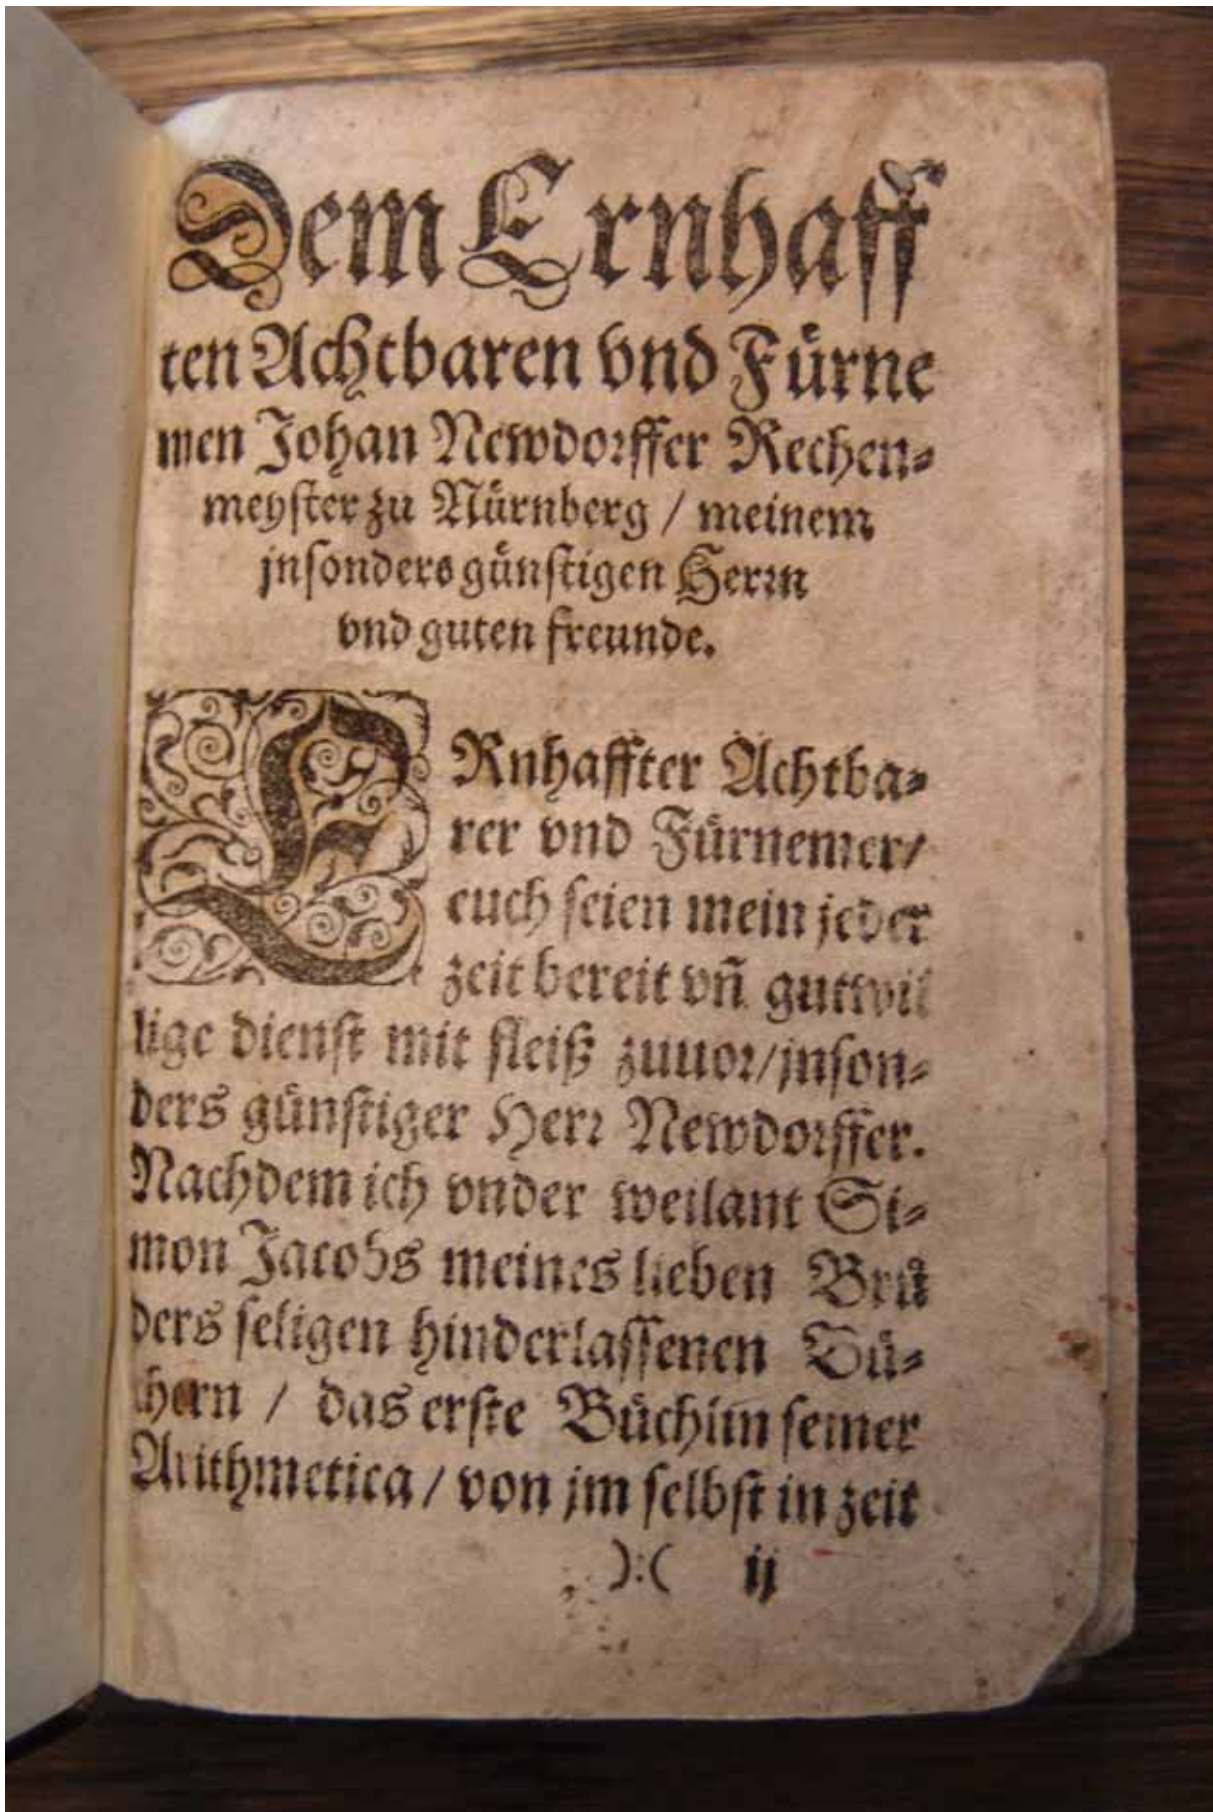 Dem Ernhaff
ten Achtbaren vnd Fürne
men Johan Newdorffer Rechen⸗
meyster zu Nürnberg / meinem
jnsonders günstigen Herrn
vnd guten freunde.
ERnhaffter Achtba⸗
rer vnd Fürnemer/
euch seien mein jeder
zeit bereit vñ guttwil
lige dienst mit fleiß zuuor/jnson⸗
ders günstiger Herr Newdorffer.
Nachdem ich vnder weilant Si⸗
mon Jacobs meines lieben Brů
ders seligen hinderlassenen Bü⸗
chern / das erste Büchlin seiner
Arithmetica / von jm selbst in zeit
):( ij